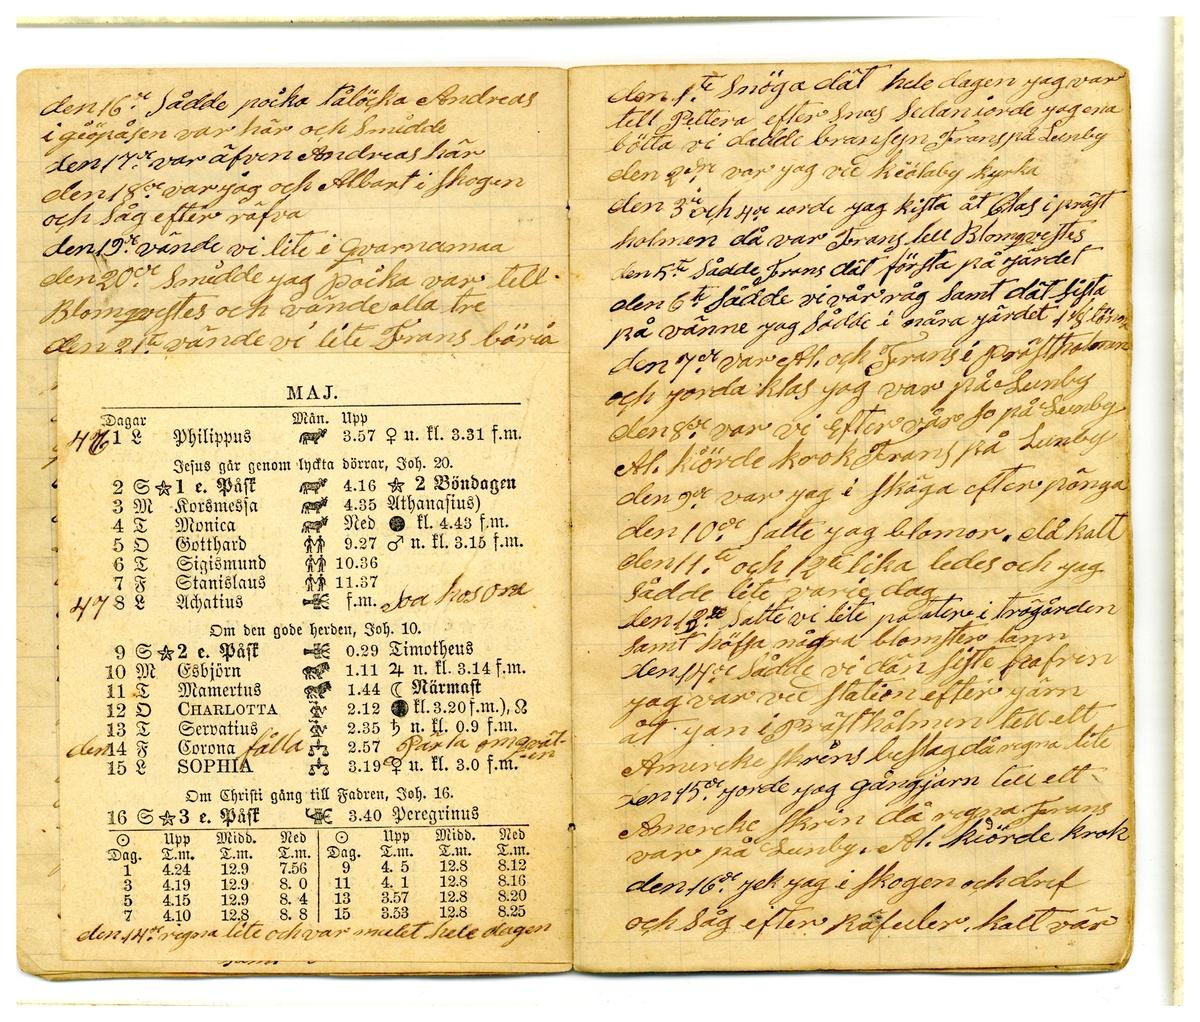 den 16de Sådde påcka tålåcka Andreas
i giöpåsen var här och Smidde
den 17de var äfven Andreas här
den 18de var jag och Albart i skogen
och Såg efter räfva
den 19de vände vi lite i qvarnamaa
den 20de Smidde jag påcka var tell
Blomqvestes och vände alla tre
den 21te vände vi lite Frans böria
MAJ.
Dagar Mån. Upp
47 1 L Philippus 3.57 ♀ u. kl. 3.31 f.m.
Jesus går genom lyckta dörrar, Joh. 20.
2 S ☆ 1 e. Påsk 4.16 ☆ 2 Böndagen
3 M Korsmessa 4.35 Athanasius)
4 T Monica Ned ● kl. 4.43 f.m.
5 O Gotthard 9.27 ♂ n. kl. 3.15 f.m.
6 T Sigismund 10.36
7 F Stanislaus 11.37
47 8 L Achatius f.m.
Om den gode herden, Joh. 10.
9 S ☆ 2 e. Påsk 0.29 Timotheus
10 M Esbjörn 1.11 ♃ n. kl. 3.14 f.m.
11 T Mamertus 1.44 ☾ Närmast
12 O CHARLOTTA 2.12 ● kl. 3.20 f.m.), ☊
13 T Servatius 2.35 ♄ n. kl. 0.9 f.m.
den 14 F Corona fålla 2.57 Pärla om qvät-
15 L SOPHIA 3.19 ♀ u. kl. 3.0 f.m. -en
Om Christi gång till Fadren, Joh. 16.
16 S ☆ 3 e. Påsk 3.40 Peregrinus
☉ Upp Midd. Ned ☉ Upp Midd. Ned
Dag. T.m. T.m. T.m. Dag. T.m. T.m. T.m.
1 4.24 12.9 7.56 9 4. 5 12.8 8.12
3 4.19 12.9 8. 0 11 4. 1 12.8 8.16
5 4.15 12.9 8. 4 13 3.57 12.8 8.20
7 4.10 12.8 8. 8 15 3.53 12.8 8.25
den 14de regna lite och var mulet hele dagen
den 1te Snöga dät hele dagen jag var
tell Pettera efter Snus Sedan iorde jag ena
bötta vi ladde bransyn Frans på Lunby
den 2dre var jag vie kiölaby kyrka
den 3de och 4de iorde jag kista åt Clas i präst
holmen då var Frans tell Blomqvestes
den 5te Sådde Frans dät första på Gärdet
den 6te Sådde vi vår råg Samt dät sista
på vänne jag Sådde i nåra gärdet
den 7de var Al. och Frans i prästholmen
och jorda klas jag var på Lunby
den 8de var vi efter vår So på Lunby
Al. kiörde krok Frans på Lunby
den 9de var jag i skåga efter pånga
den 10de Satte jag blomor. då kalt
den 11te och 12te lika ledes och jag
Sådde lite varie dag
den 13de Satte vi lite patater i trögården
Samt höfsa några blomster lann
den 14de Sådde vi dän siste hafren
jag var vie station efter järn
åt jan i Prästhålmen tell ett
Amireke skrins beslag då regna lite
den 15de jorde jag gångjarn tell ett
Amercke skrin då regna Frans
var på Lunby. Al. kiörde krok
den 16de jek jag i skogen och dref
och Såg efter Räfueler. kalt vär